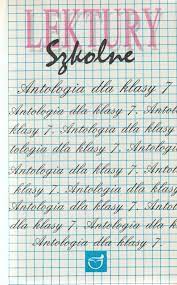 LEKTURY
Szkolne
Antologia dla klasy 7
Antologia dla klasy 7. Antol
klasy 7. Antologia dla klasy
tologia dla klasy 7. Antolog
Antologia dla klasy 7. Antol
klasy 7. Antologia dla klasy
Antologia dla klasy 7. Anto
dla klasy 7. Antologia dla k
Antologia dla klasy 7.